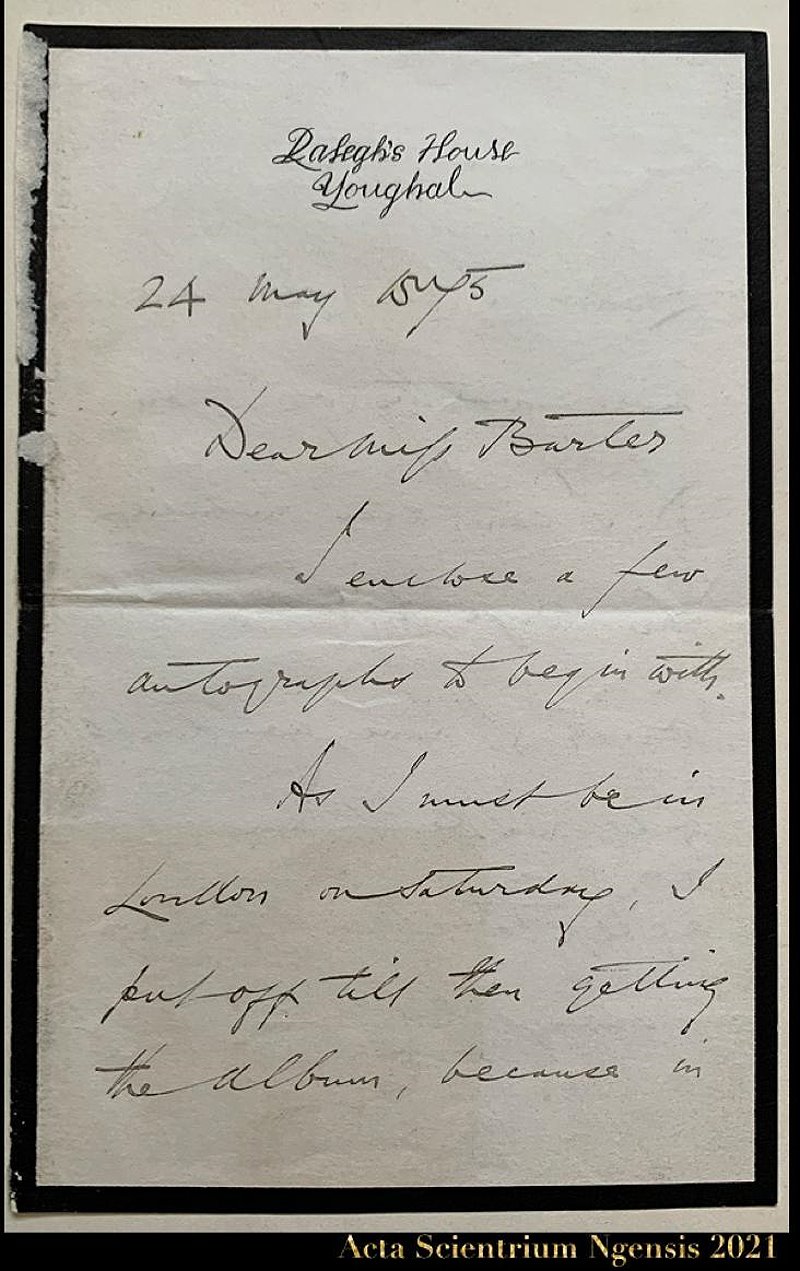 Ralegh's House
Youghal
24 May
Dear Miss Barter
I enclose a few
autographs to begin with.
As I must be in
London on Saturday, I
put off till then getting
the album, because in
Acta Scientrium Ngensis 2021